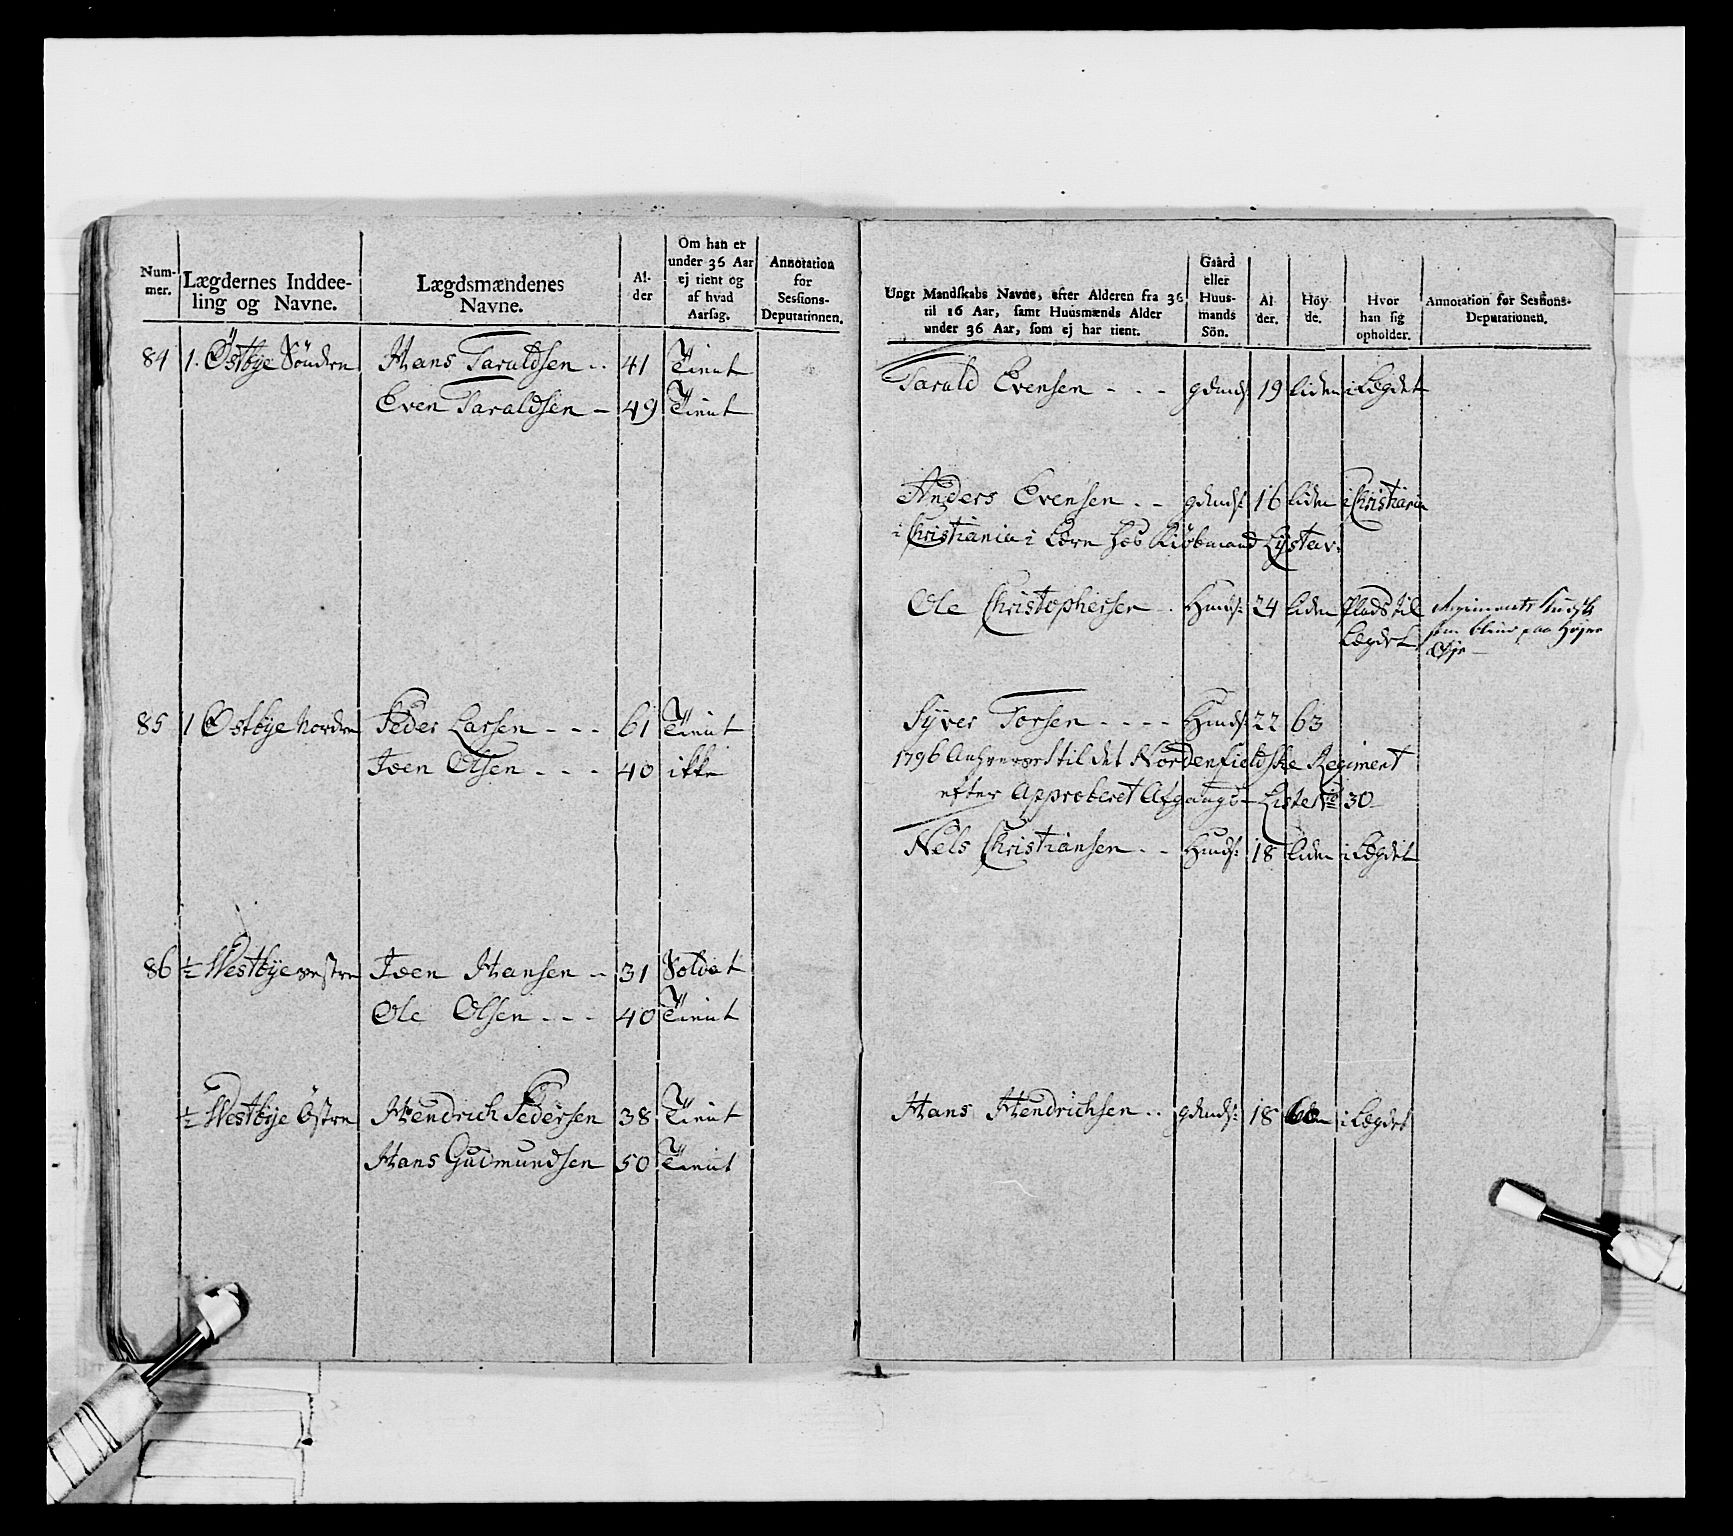 Num-
mer.
Lægdernes Inddee-
ling og Navne.
Lægdsmændenes
Navne.
Al-
der
Om han er
under 36 Aar
ej tient og
af hvad
Aarsag.
Annotation
for
Sessions-
Deputationen.
84 1. Östbye Söndre Hans Taraldsen .. 41 Tient
Even Taraldsen - 49 Tient
85 1 Østbye Nordre Peder Larsen - - - 61 Tient
Joen Olsen - - - 40 ikke
86 ½ Westbye vestre Joen Hansen .. 31 Soldat
Ole Olsen - - - 40 Tient
½ Westbye Östre Hendrich Pedersen 38 Tient
Hans Gudmundsen 50 Tient
Ungt Mandskabs Navne, efter Alderen fra 36
til 16 Aar, samt Huusmænds Alder
under 36 Aar, som ej har tient.
Gaard
eller
Huus-
mands
Sön.
Al
der.
Höy
de.
Hvor
han sig
opholder.
Annotation for Sessions-
Deputationen.
Tarald Evensen - - - gdmds 19 liden i Lægdet
Anders Evensen . - gdmds: 16 liden i Christiania
i Christiania i Lære hos Kiöbmand
Ole Christophersen - Hmds: 24 liden Plads til
Lægdet
Regiments
som blind paa Höyre
Öye -
Syver Torsen - - - - Hmds 22 63
1796 til det Nordenfieldske Regiment
efter Approberet Afgangs-Liste No 30
Nels Christiansen . - Hmds: 18 liden i Lægdet
Hans Hendrichsen .. gdmds: 18 i Lægdet